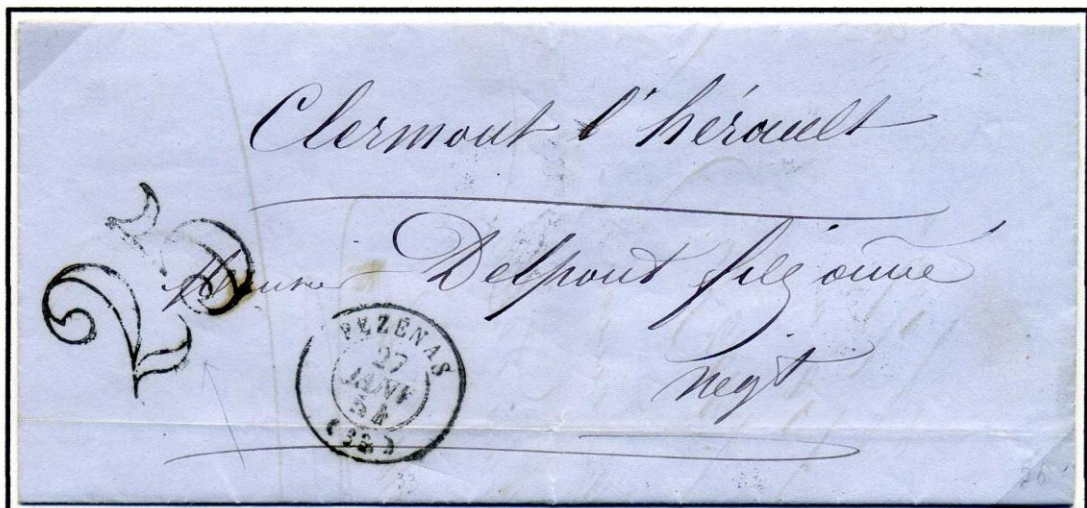 Clermont l'hérault
25
Monsieur Delpont fils ainé
negt
PEZÉNAS
27
JANV
54
(33)
20